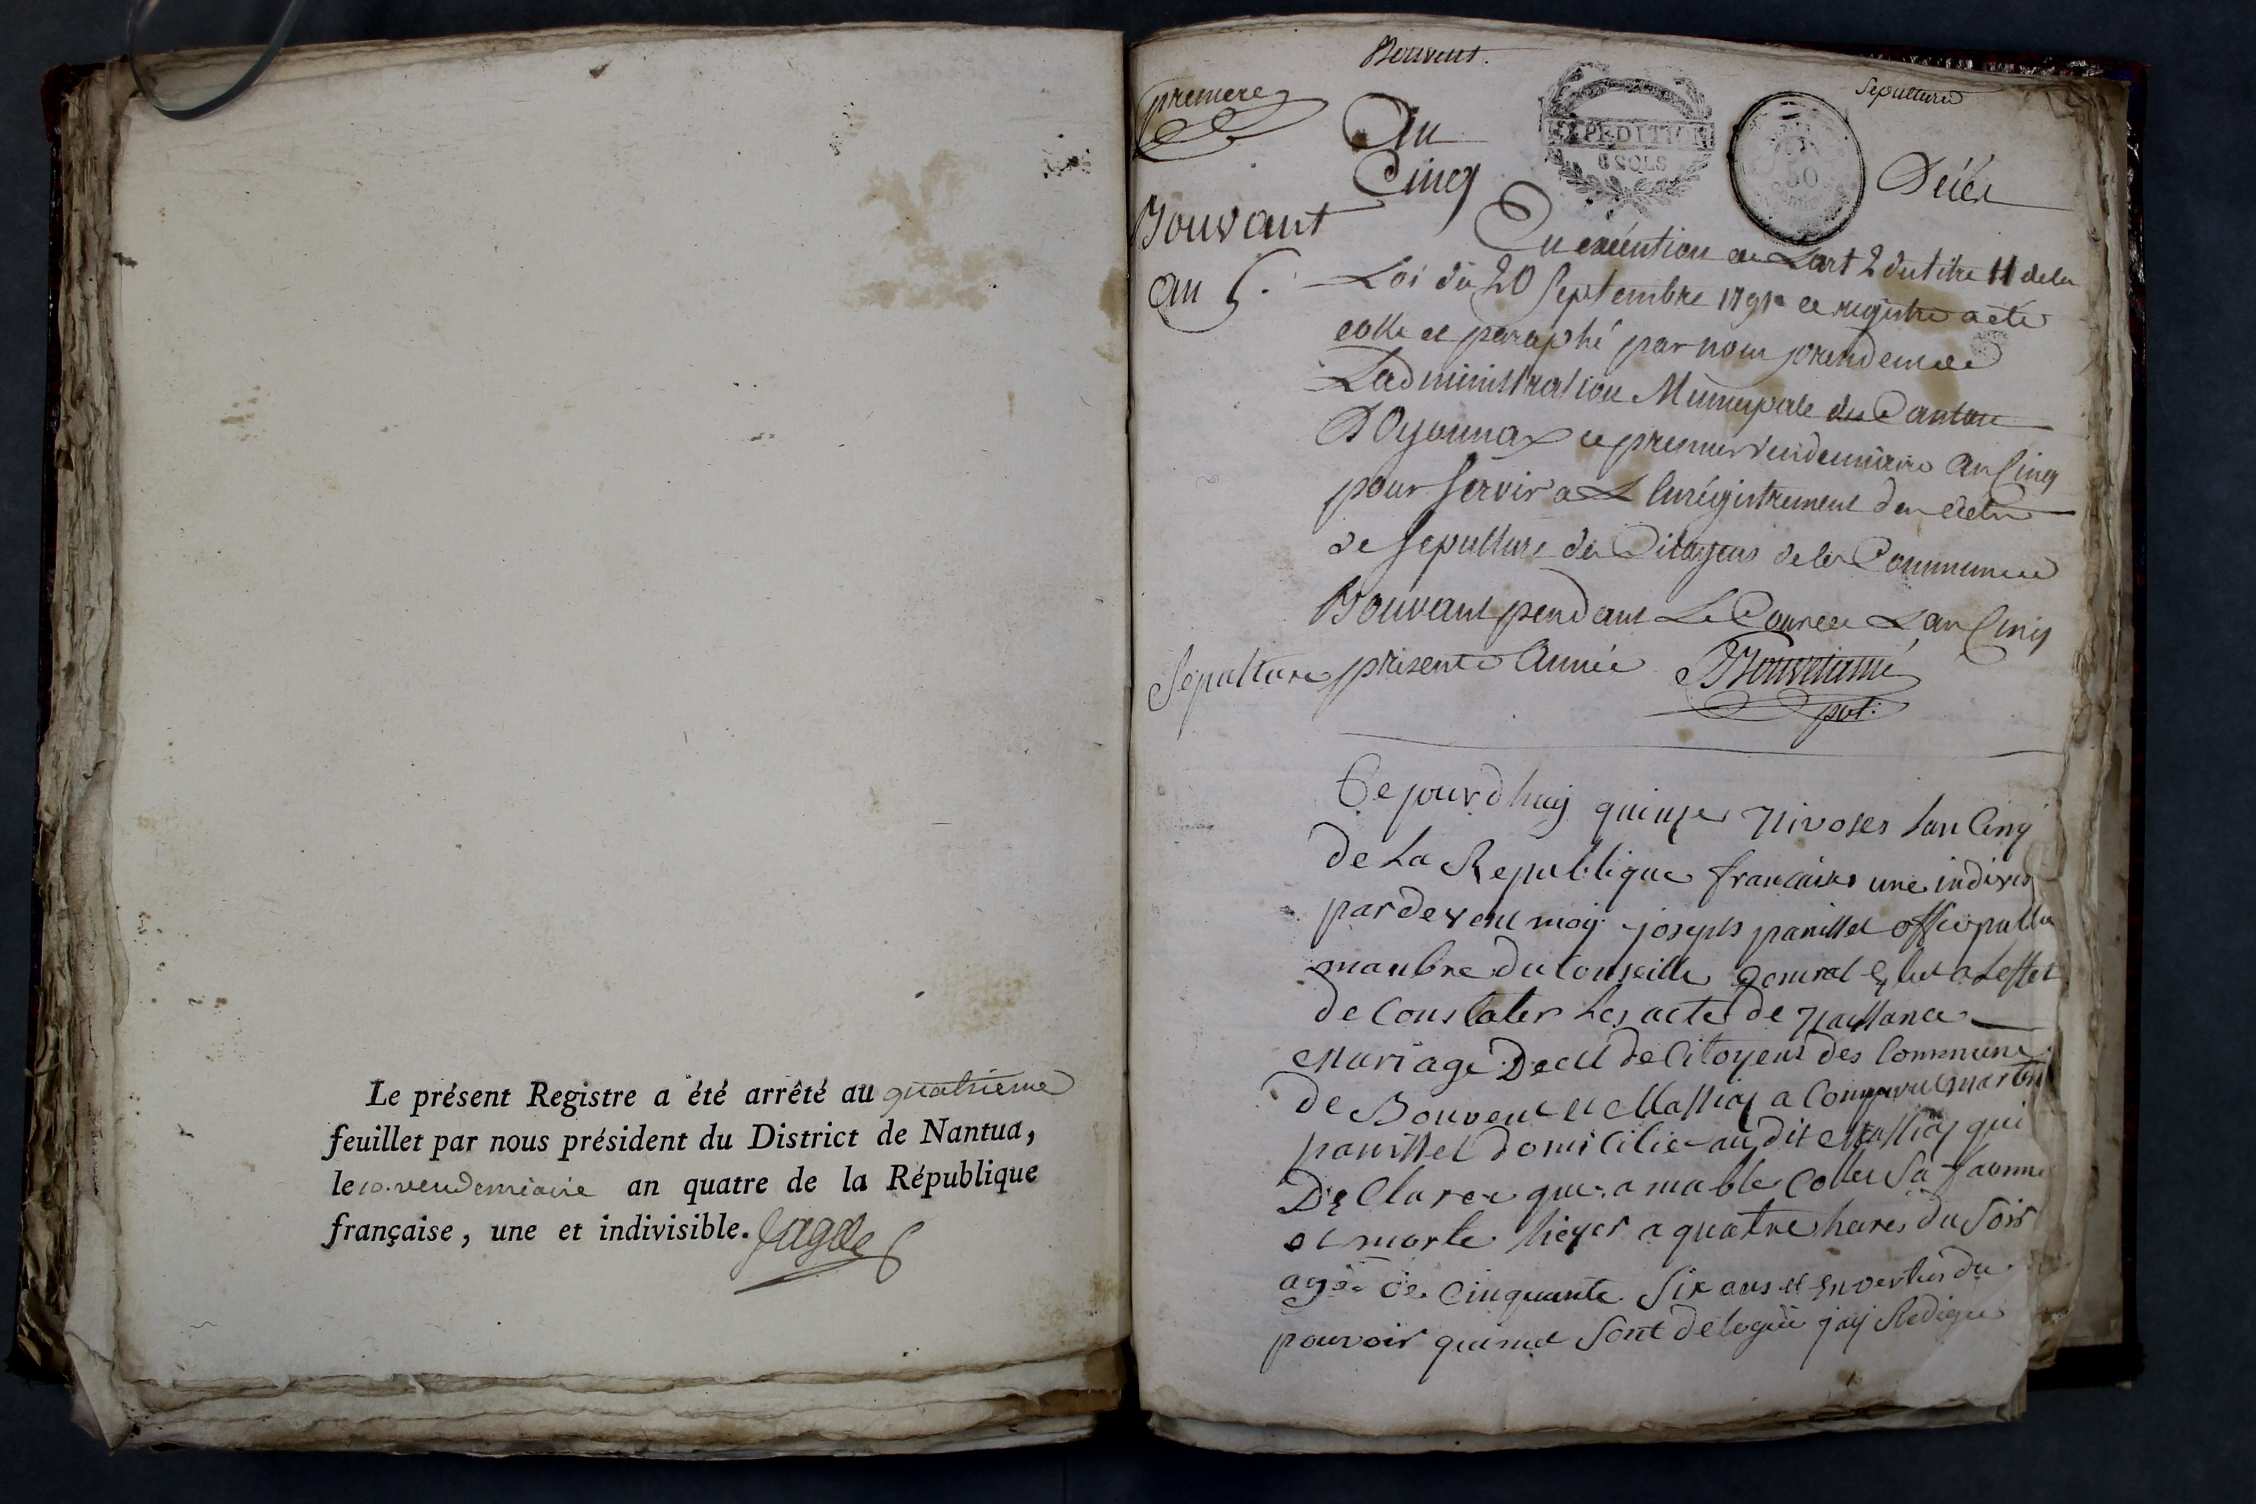 Le présent Registre a été arrêté au quatrième
feuillet par nous président du District de Nantua,
le 10. vendemiaire an quatre de la République
française, une et indivisible.
Bouvent.
Sepulture
premiere
An
Cinq
EXPEDITION
8 SOLS
Décès
Bouvant
an 5.
En exécution de Lart 2 du titre II de la
Loi du 20 Septembre 1792 ce registre a été
cotte et paraphé par nous president de
Ladministration Municipale du Canton
D'Oyonnax ce premier vendemiaire an Cinq
pour servir a L'enrégistrement des actes
de sepulture des Citoyens de la Commune de
Bouvant pendant Le Cours de Lan Cinq
Sepulture
présente Année
Bouvet ainé
pdt:
Ce jourdhuy quinze nivoses lan Cinq
de La Republique francaises une indivis
pardevent moy joseph panisset offic public
manbre du Conseille general Elut a Leffet
de Constater Les acte de naissance
Mariage Decet de Citoyens des Commune
de Bouvent et Massiat a Comparu martin
panisset domicilie audit Massiat qui
Declaree que amable Collet sa famme
et morte hieyer a quatre hares du Soir
agée de Cinquante Six ans et En vertus du
pouvoir quimet Sont delegué jay Redigue